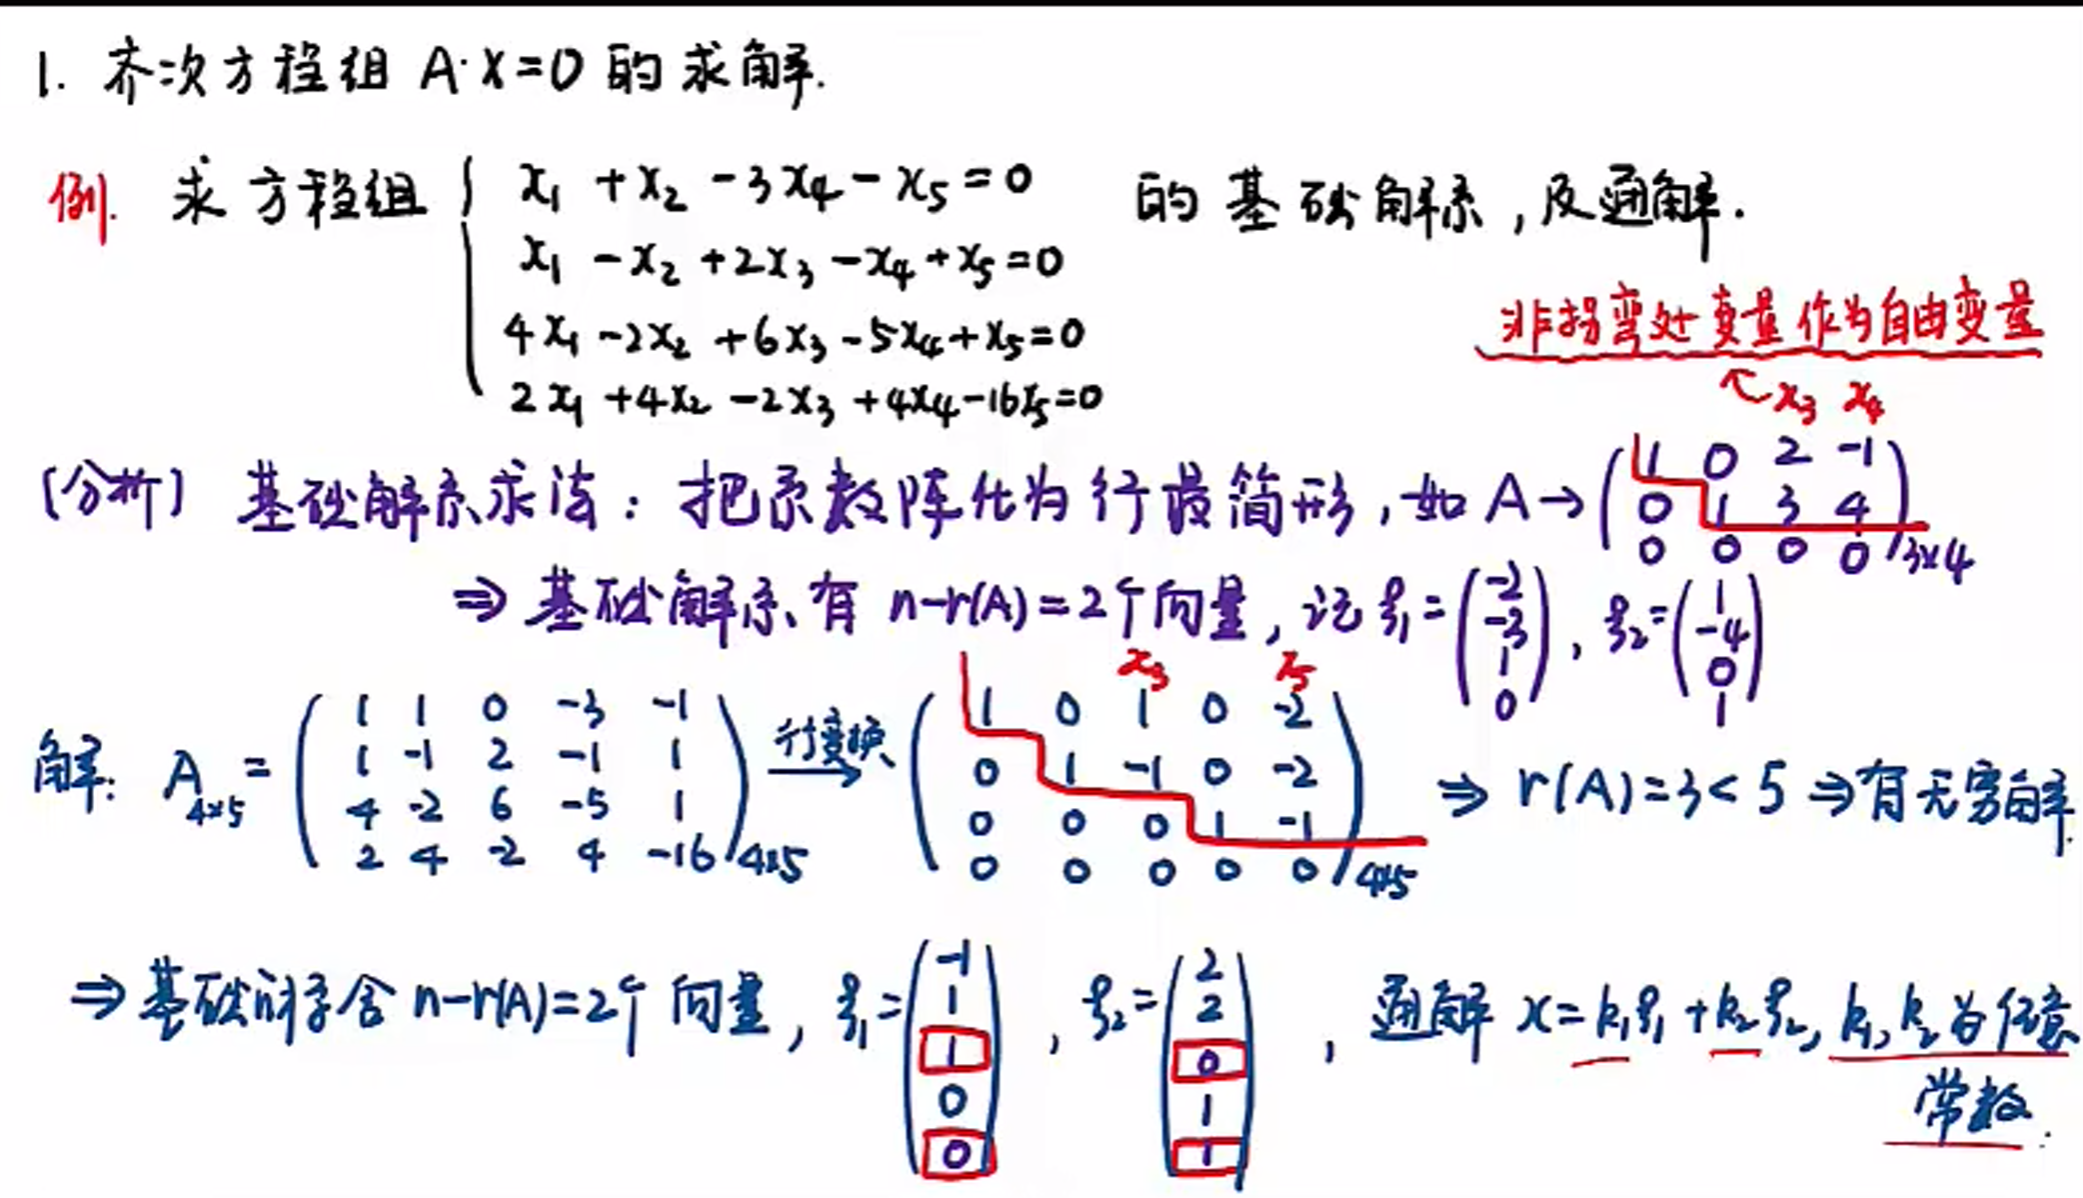 1. 齐次方程组 A·X=0 的求解.
例. 求方程组 { x₁ +x₂ -3x₄ -x₅ =0 的基础解系,及通解.
x₁ -x₂ +2x₃ -x₄ +x₅ =0
4x₁ -2x₂ +6x₃ -5x₄ +x₅ =0
2x₁ +4x₂ -2x₃ +4x₄ -16x₅ =0
非拐弯处变量作为自由变量
x₃ x₄
(分析) 基础解系求法: 把系数阵化为行最简形, 如 A→ (1 0 2 -1
0 1 3 4
0 0 0 0)3x4
⇒ 基础解系有 n-r(A)=2个向量, 记 ξ₁= (-2 -3 1 0), ξ₂= (1 -4 0 1)
x₃ x₅
解: A4x5 = (1 1 0 -3 -1
1 -1 2 -1 1
4 -2 6 -5 1
2 4 -2 4 -16)4x5 行变换→ (1 0 1 0 -2
0 1 -1 0 -2
0 0 0 1 -1
0 0 0 0 0)4x5 ⇒ r(A)=3<5 ⇒有无穷解.
⇒ 基础解系含 n-r(A)=2个向量, ξ₁= (-1 1 1 0 0), ξ₂= (2 2 0 1 1), 通解 x=k₁ξ₁+k₂ξ₂, k₁, k₂为任意
常数.